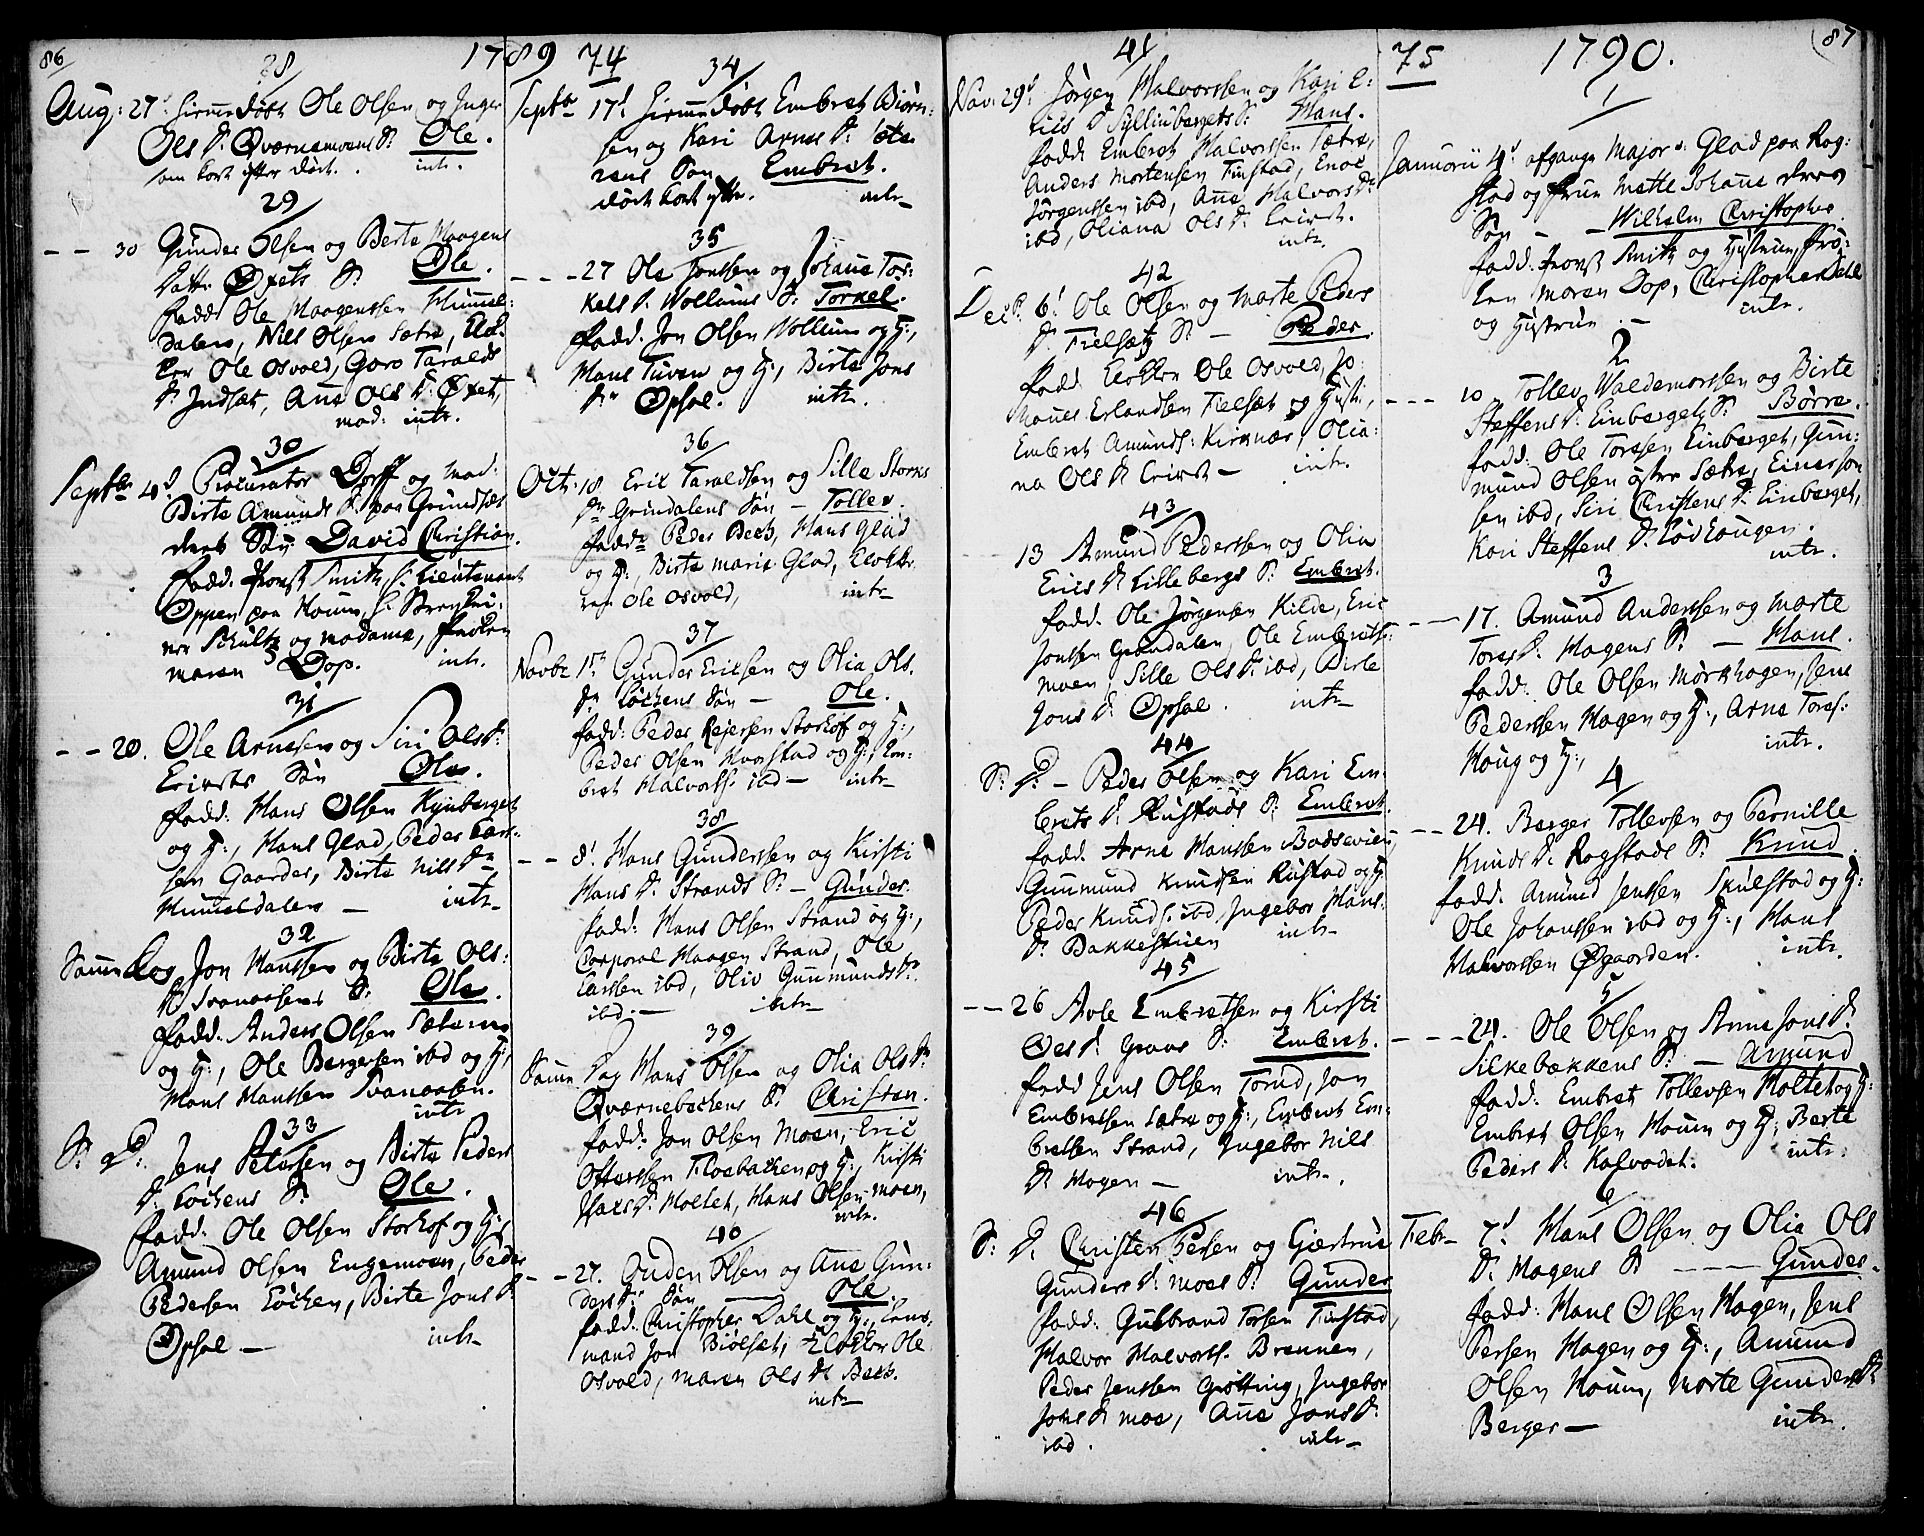 86
1789
74
28
Aug: 27d hiemmedöbt Ole Olsen og Inger
Ols D. Qværnemoens S: Ole.
som kort efter döde. intr.
29
- - 30 Gunder Olsen og Berte Maagens
Datter Öxets S. Ole.
Fadd: Ole Maagenssen Hummel-
dalen, Nils Olsen Sætre, Klok-
ker Ole Osvold, Goro Taralds
D. Indset, Ane Ols D. Öxet,
mod: intr.
30
Septbr 4d Procurator Dorff og mad.
Birte Amunds D. paa Grundset
deres Sön David Christian.
fadd. Provst Smith, H. Lieutenant
Oppen paa Houm, H. Bergskri-
ver Schultz og madame, Fröken
maren Dop. intr.
31
- - 20. Ole Arnesen og Siri Ols D.
Erirsts Sön Ole.
fadd: Hans Olsen Kynberget
og H:, Hans Glad, Peder Lars-
sen Gaarder, Birte Nils Dr
Hummeldalen — intr
32
Samme Dag Jon Hanssen og Birte Ols:
D. Svenaasens S. Ole.
fadd. Anders Olsen Sæteren
og H:, Ole Bergersen ibd og H:,
Hans Hanssen Svenaasen.
intr
33
S. D. Jens Petersen og Birte Peders
D. Löckens S. Ole.
fadd. Ole Olsen Storhof og H:
Amund Olsen Engemoen, Peder
Pedersen Löcken, Birte Jons D.
Opsal — intr
34
Septbr 17d hiemmedöbt Embret Biörn-
sen og Kari Arnes D: Sete-
rens Sön Embret.
döde kort efter. intr
35
- - - 27 Ole Jonssen og Johane Tor-
kels D. Wollums S. Torkel.
fadd. Jon Olsen Wollum og H:,
Hans Tuven og H:, Birte Jons
Dr Opsal. intr.
36
Oct: 18 Eric Taraldsen og Sille Storks
Dr Grindalens Sön — Tollev
fadd: Peder Beck, Hans Glad
og H:, Birte marie Glad, Klokke-
ren Ole Osvold, intr
37
Novbr 1ste Gunder Ericsen og Olia Ols.
Dr Löckens Sön — Ole.
fadd: Peder Rejersen Storhof og H:,
Peder Olsen Hvorstad og H:, Em-
bret Halvorss. ibd — intr
38
- - 8d Hans Gunderssen og Kirsti
Hans D. Strands S. — Gunder.
fadd: Hans Olsen Strand og H:,
Corporal Haagen Strand, Ole
Larssen ibd, Oliv Gunmunds Dr
ibd. — intr
39
Samme Dag Hans Olsen og Olia Ols Dr
Qværnebeckens S. Christen.
fadd: Jon Olsen Moen, Eric
Ottersen Floebacken og H:, Kirsti
Hans D. Moelet, Hans Olsen moen,
intr.
40
- - 27. Ouden Olsen og Ane Gun-
ders Dr Sön — Ole.
fadd. Christopher Dahl og H:, Lens-
mand Jon Biölset, Klokker Ole
Osvold, maren Ols D. Beck.
intr
87
75
1790.
41
Nov: 29d Jörgen Halvorssen og Kari E-
rics D. Syllinbergets S: Hans.
fadd: Embret Halvorssen Sætre,
Anders Mortensen Finstad, Enoc
Jörgenssen ibd, Ane Halvors Dr
ibd, Oliana Ols D. Erirst.
intr.
42
Dec: 6d Ole Olsen og Marte Peders
D. Fielsetz S. — Peder
fadd. Klokker Ole Osvold, Jo-
hanes Erlandsen Fielset og Hustr.,
Embret Amunds. Kirknær, Olia-
na Ols D. Erirst — intr.
43
- - - 13 Amund Pederssen og Olia
Erics D. Lillebergs S. Embret.
fadd. Ole Jörgensen Kilde, Eric
Jonssen Grindalen, Ole Embrets-
moen, Sille Ols D. ibd, Birte
Jons D. Opsal. intr
44
S. D. — Peder Olsen og Kari Em-
brets D. Rustads S. Embret
fadd. Arne Hanssen Bodsevien,
Gunmund Knudsen Rustad og H.
Peder Knuds. ibd, Ingebor Hans
D. Backestuen intr
45
- - 26 Avle Embretsen og Kirsti
Oles D. Graas S. Embret.
fadd Jens Olsen Torud, Jon
Embretssen Sætre og H:, Embret Em-
bretsen Strand, Ingebor Nils
D. Hogen — intr.
46
S. D. Christen Persen og Giertrue
Gunders D. moes S. Gunder
fadd. Gulbrand Torsen Finstad,
Halvor Halvorss. Brennen,
Peder Jenssen Grötting, Ingebor
Jons D. moe, Ane Jons D.
ibd. intr
1
Januarii 4d afgangne Major v. Glad paa Rog-
stad og Frue Mette Johane deres
Sön — Wilhelm Christopher
fadd. Provst Smith og Hustrue, Frö-
ken Maren Dop, Christopher Dahl
og Hustrue. — intr.
2
- - - 10 Tollev Woldemorssen og Birte
Steffens D. Einberget S. Börre.
fadd: Ole Torsen Einberget, Gun-
mund Olsen östre Sætre, Einer Jon-
sen ibd, Siri Christens D. Einberget,
Kari Steffens D. Lödlougen.
intr.
3
- - - 17. Amund Anderssen og Marte
Tores D. Hagens S. — Hans.
fadd: Ole Olsen Mörkhagen, Jens
Pederssen Hagen og H:, Arne Tores:
Houg og H:, intr.
4
- - 24. Berger Tollevsen og Pernille
Knuds D. Rogstads S. Knud
fadd. Amund Jenssen Skulstad og H:
Ole Johanssen ibd og H:, Hans
Halvorssen Öegaarden. intr.
5
- - - 24. Ole Olsen og Anne Jons D.
Silkebækkens S. — Amund
fadd. Embret Tollevsen Moelet og H:
Embret Olsen Houm og H: Berte
Peders D. Kalvodet. intr.
6
Febr 7d Hans Olsen og Olia Ols
D. Hagens S. — Gunder.
fadd: Hans Olsen Hagen, Jens
Persen Hagen og H:, Amund
Olsen Houm, Marte Gunders D.
Berger — intr.